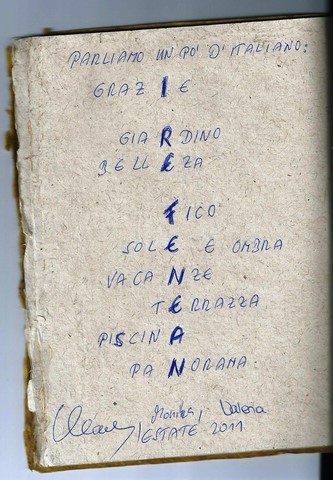 PARLIAMO UN PO' D'ITALIANO:
GRAZIE
GIARDINO
BELLEZA
FICO
SOLE E OMBRA
VACANZE
TERRAZZA
PISCINA
PANORAMA
Monika,
ESTATE 2011